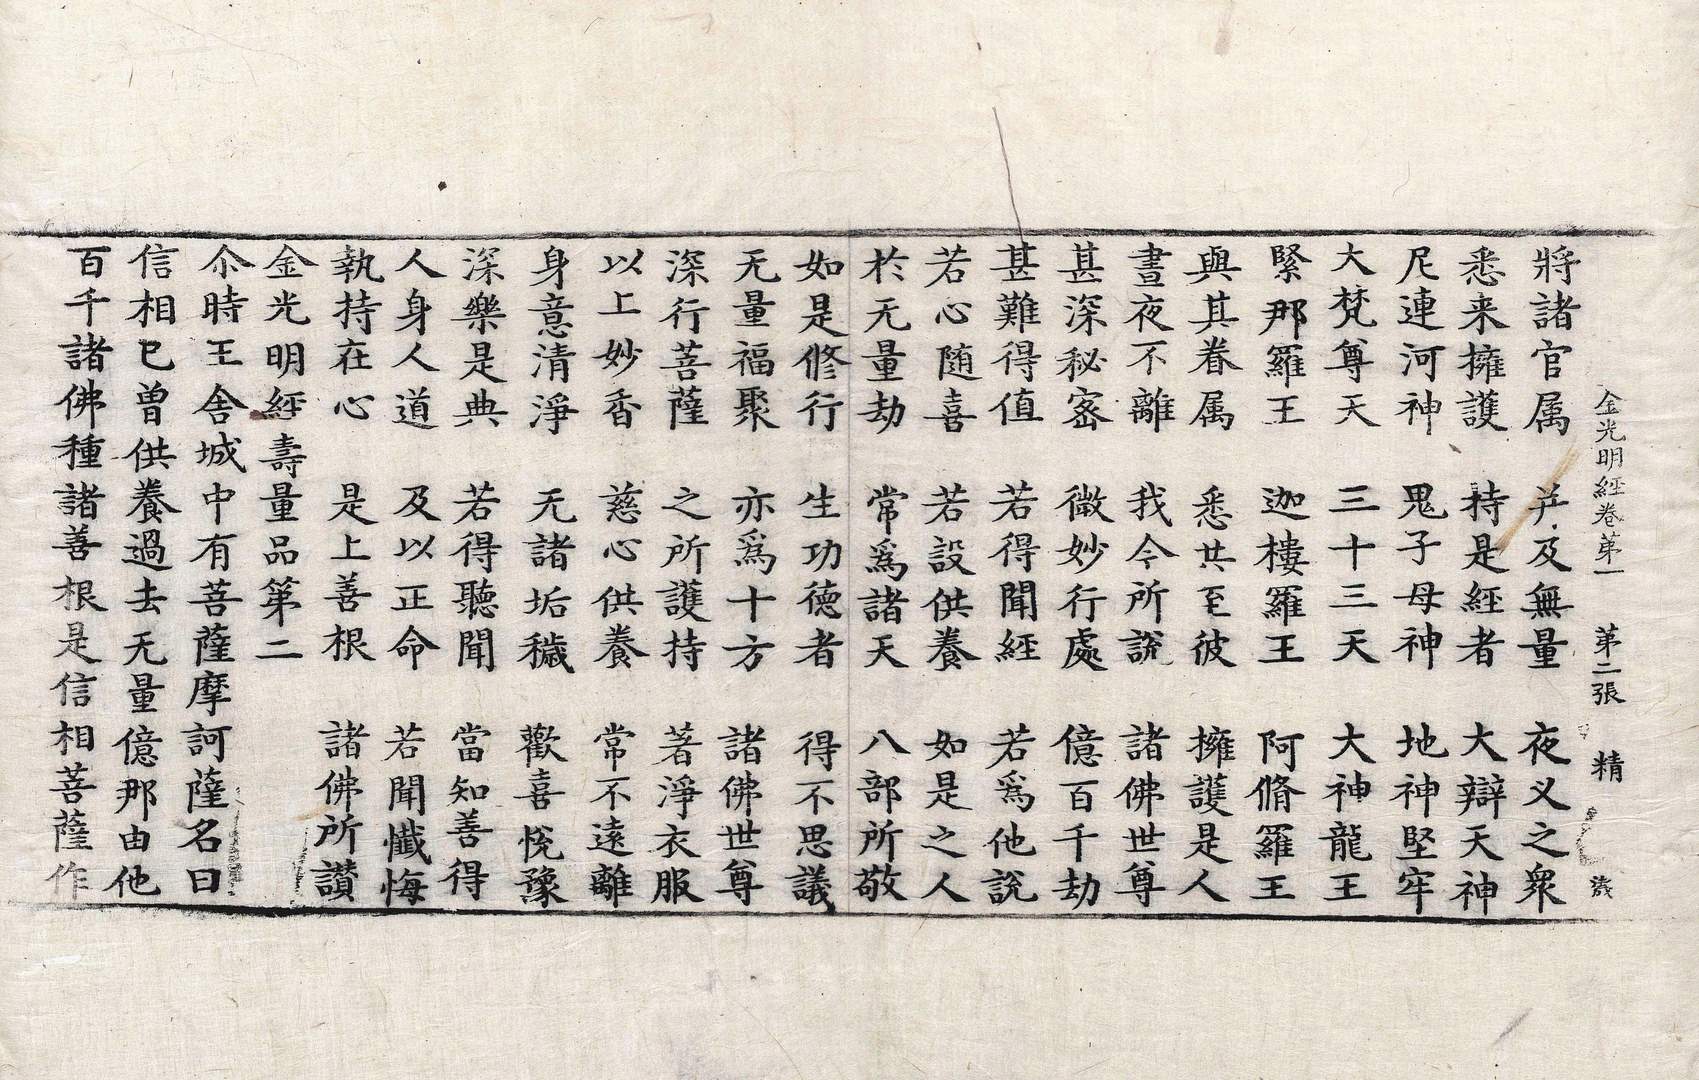 金光明經卷苐一 苐二張 精
將諸官属 并及無量 夜叉之衆
悉来擁護 持是經者 大辯天神
尼連河神 鬼子母神 地神堅牢
大梵尊天 三十三天 大神龍王
緊那羅王 迦樓羅王 阿脩羅王
與其眷属 悉共至彼 擁護是人
晝夜不離 我今所説 諸佛世尊
甚深秘密 微妙行處 億百千劫
甚難得值 若得聞經 若爲他説
若心随喜 若設供養 如是之人
於无量劫 常爲諸天 八部所敬
如是修行 生功德者 得不思議
无量福聚 亦爲十方 諸佛世尊
深行菩薩 之所護持 著淨衣服
以上妙香 慈心供養 常不遠離
身意清淨 无諸垢穢 歡喜悅豫
深樂是典 若得聽聞 當知善得
人身人道 及以正命 若聞懺悔
執持在心 是上善根 諸佛所讃
金光明經壽量品第二
尒時王舍城中有菩薩摩訶薩名曰
信相已曾供養過去无量億那由他
百千諸佛種諸善根是信相菩薩作